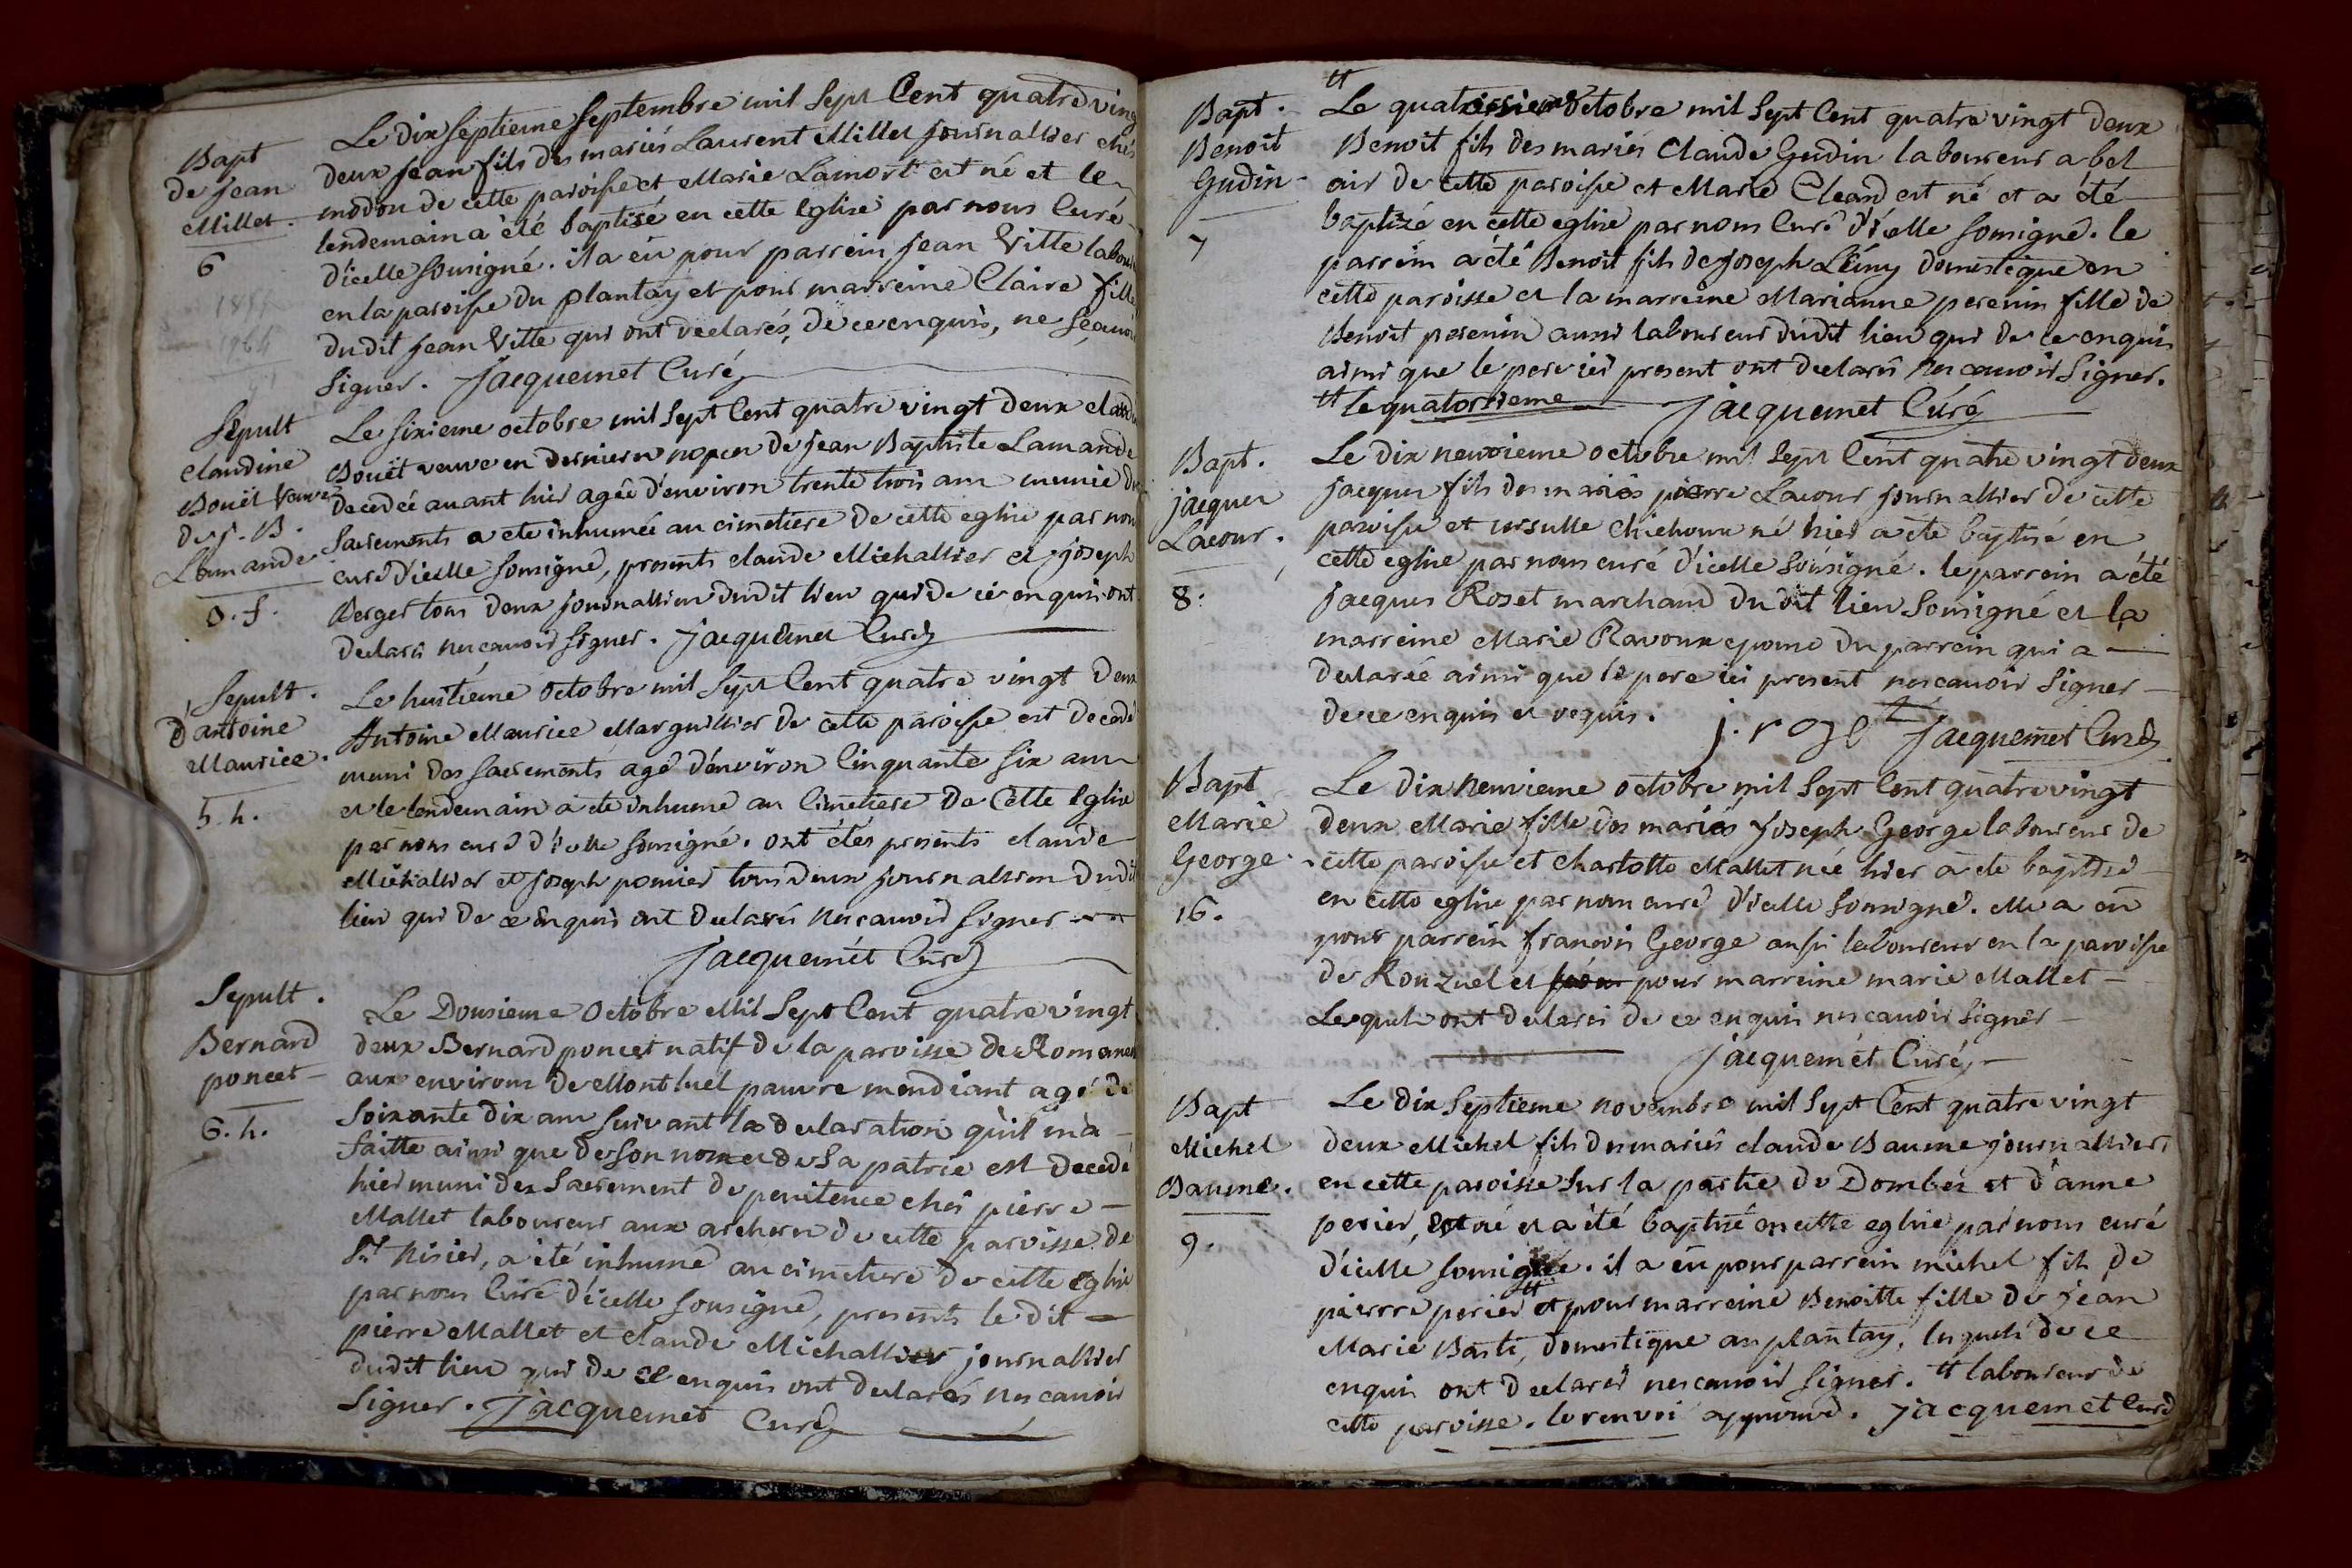 Bapt
de jean
Millet.
6
Le dix septieme septembre mil sept Cent quatre ving
deux jean fils des mariés Laurent Millet journallier chés
modon de cette paroisse et Marie Lamort est né et le
lendemain a été baptisé en cette Eglise par nous Curé
d'icelle sousigné. il a eü pour parrein jean Vitte labou
en la paroisse du plantay et pour marreine Claire fille
dudit jean Vitte qui ont declarés, de ce enquis, ne sçauoi
signer. Jacquemet Curé
Sepult
claudine
Bouët Veuve
de j. B.
Lamande
o. f.
Le sixieme octobre mil sept Cent quatre vingt deux claudi
Bouët veuve en dernieres nopces de jean Baptiste Lamande
decedée auant hier agée d'environ trente trois ans munie des
sacrements a ete inhumée au cimetiere de cette eglise par nous
curé d'icelle sousigné, presents claude Michallier et joseph
Berger tous deux journalliers dudit lieu qui de ce enquis ont
declarés ne scauoir signer. Jacquemet Curé
Sepult.
D'antoine
Maurice.
5. h.
Le huitieme octobre mil sept Cent quatre vingt deux
Antoine Maurice Marguillier de cette paroisse est decedé
muni des sacrements agé d'environ Cinquante six ans
et le lendemain a ete inhumé au Cimetiere de Cette Eglise
par nous curé d'icelle sousigné. ont étés presents claude
Michallier et joseph pomier tous deux journalliers dudit
lieu qui de ce enquis ont declarés ne scauoir signer
Jacquemet Curé
Sepult.
Bernard
poncet
6. h.
Le Dousieme Octobre Mil Sept Cent quatre vingt
deux Bernard poncet natif de la paroisse de Romanes
aux environs de Montluel pauvre mendiant agé de
soixante dix ans suivant la declaration qu'il m'a
faitte ainsi que de son nom et de sa patrie est decedé
hier muni des Sacrement de penitence chés pierre
Mallet laboureur aux archers de cette paroisse de
St. Nisier, a été inhumé au cimetiere de cette Eglise
par nous Curé d'icelle sousigné, presents le dit
pierre Mallet et claude Michallier journallier
dudit lieu qui de ce enquis ont declarés ne scauoir
signer. Jacquemet Curé
Bapt.
Benoit
Gudin
7
tt
Le quatorsieme octobre mil sept Cent quatre vingt deux
Benoit fils des mariés Claude Gudin laboureur a bel
air de cette paroisse et Marie Cleard est né et a été
baptizé en cette eglise par nous Curé d'icelle sousigné. le
parrein a été Benoit fils de joseph Lémy domestique en
cette paroisse et la marreine Marianne perenin fille de
Benoit perenin aussi laboureur dudit lieu qui de ce enquis
ainsi que le pere ici present ont declarés ne scauoir signer.
tt le quatorsieme Jacquemet Curé
Bapt.
jacques
Lacour.
8.
Le dix neuvieme octobre mil sept Cent quatre vingt deux
jacques fils des mariés pierre Lacour journallier de cette
paroisse et ursulle Chichoux né hier a été baptisé en
cette eglise par nous curé d'icelle sousigné. le parrein a été
jacques Rozet marchand du dit lieu sousigné et la
marreine Marie Ravoux epouse du parrein qui a
declarée ainsi que le pere ici present ne scauoir signer
de ce enquis et requis. j. rozet Jacquemet Curé
Bapt
Marie
George
16.
Le dix neuvieme octobre mil Sept Cent quatre vingt
deux Marie fille des mariés Joseph George laboureur de
cette paroisse et Charlotte Mallet née hier a été baptisé
en cette eglise par nous curé d'icelle sousigné. elle a eü
pour parrein francois George aussi laboureur en la paroisse
de Ronzuel et pour pour marreine marie Mallet
Lesquels ont declarés de ce enquis ne scauoir signer
Jacquemet Curé
Bapt
Michel
Baume.
9.
Le dix Septieme novembre mil Sept Cent quatre vingt
deux Michel fils des mariés claude Baume journallier
en cette paroisse sur la partie de Dombes et d'anne
perier, est né et a été baptisé en cette eglise par nous curé
d'icelle sousigné. il a eü pour parrein michel fils de
pierre perier tt et pour marreine Benoitte fille de jean
Marie Basti, domestique au plantay, lesquels de ce
enquis ont declarés ne scauoir signer. tt laboureur de
cette paroisse. le renvoi approuvé. Jacquemet Curé